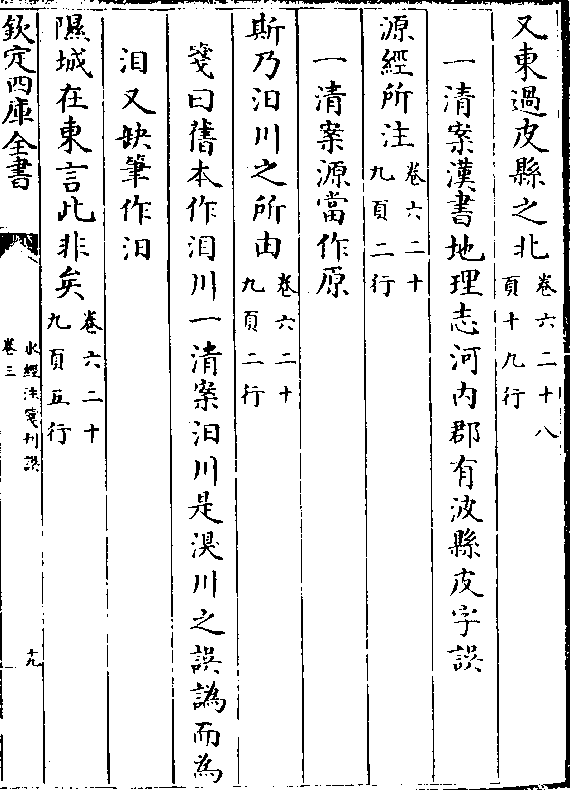 又東過皮縣之北卷六二十八頁十九行
一清案漢書地理志河内郡有波縣皮字誤
源經所注卷六二十九頁二行
一清案源當作原
斯乃汩川之所由卷六二十九頁二行
箋曰舊本作泪川一清案汩川是湨川之誤譌而為
泪又缺筆作汩
隰城在東言此非矣卷六二十九頁五行
欽定四庫全書
水經注箋刊誤
卷三
十九